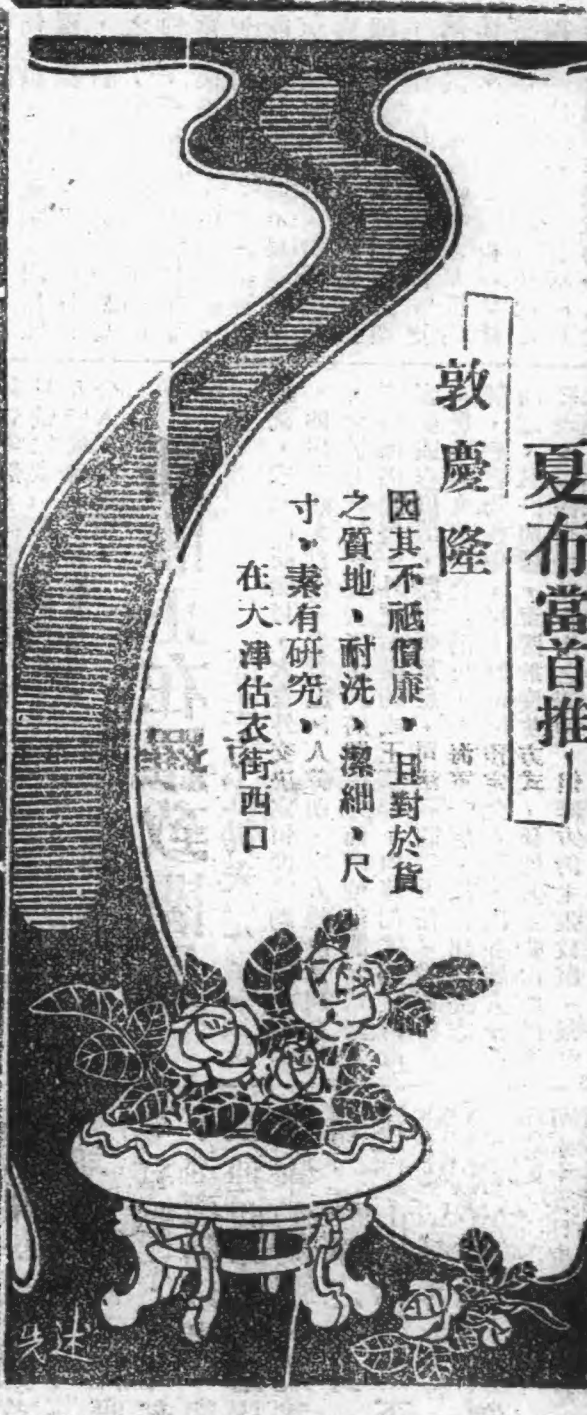 夏布當首推
敦慶隆
因其不祗價廉、且對於貨
之質地、耐洗、潔細、尺
寸、素有研究、
在天津估衣街西口